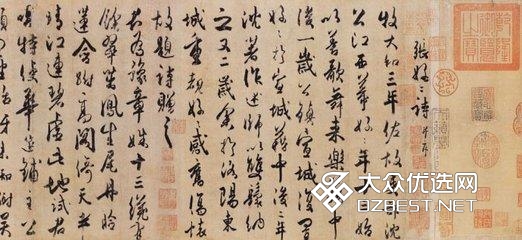 張好好詩 并序
牧大和三年佐故吏部沈
公江西幕好好年十三始
以善歌舞來樂籍中
後一歲公鎮宣城復置
好好於宣城籍中後二年
沈著作述師以雙鬟納
之又二歲余於洛陽東
城重覩好好感舊傷懷
故題詩贈之
君為豫章姝十三纔有
餘翠茁鳳生尾丹臉
蓮含跗高閣倚天半
晴江連碧虛此地試君
唱特使華筵鋪主公
大众优选网
BZBEST.NET